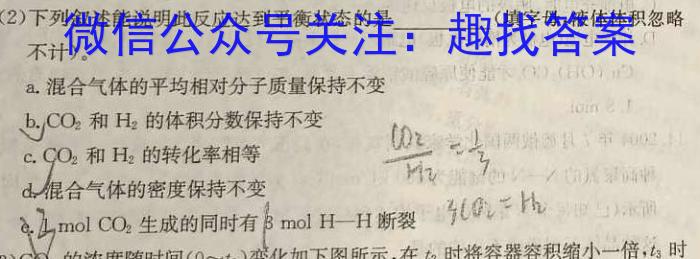 (2)下列叙述能说明此反应达到平衡状态的是________(填字母,液体体积忽略
微信公众号关注：趣找答案
不计)。
a. 混合气体的平均相对分子质量保持不变
b. CO₂ 和 H₂ 的体积分数保持不变
c. CO₂ 和 H₂ 的转化率相等
d. 混合气体的密度保持不变
e. 1 mol CO₂ 生成的同时有 3 mol H—H 断裂
CO2/H2 = 1/3
3CO2 = H2
的浓度随时间(0~t₂)变化如下图所示,在 t₂ 时将容器容积缩小一倍,t₃ 时